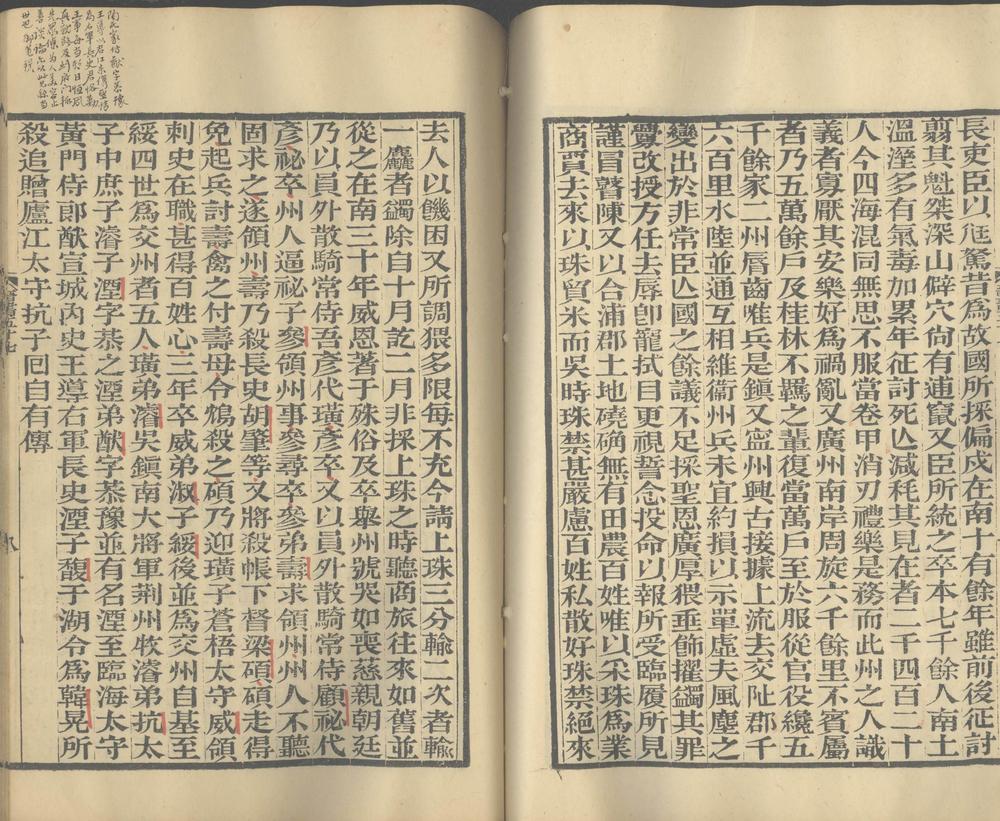 長吏臣以尫駑昔爲故國所採偏戍在南十有餘年雖前後征討
翦其魁桀深山僻穴尚有逋竄又臣所統之卒本七千餘人南土
溫溼多有氣毒加累年征討死亾減耗其見在者二千四百二十
人今四海混同無思不服當卷甲消刃禮樂是務而此州之人識
義者寡厭其安樂好爲禍亂又廣州南岸周旋六千餘里不賓屬
者乃五萬餘戶及桂林不羈之輩復當萬戶至於服從官役纔五
千餘家二州脣齒唯兵是鎭又寧州興古接據上流去交阯郡千
六百里水陸並通互相維衞州兵未宜約損以示單虛夫風塵之
變出於非常臣亾國之餘議不足採聖恩廣厚猥垂飾擢蠲其罪
釁改授方任去辱卽寵拭目更視誓念投命以報所受臨履所見
謹冒瞽陳又以合浦郡土地磽确無有田農百姓唯以采珠爲業
商賈去來以珠貿米而吳時珠禁甚嚴慮百姓私散好珠禁絕來
去人以饑困又所調猥多限每不充今請上珠三分輸二次者輸
一麤者蠲除自十月訖二月非採上珠之時聽商旅往來如舊並
從之在南三十年威恩著于殊俗及卒舉州號哭如喪慈親朝廷
乃以員外散騎常侍吾彥代璜彥卒又以員外散騎常侍顧祕代
彥祕卒州人逼祕子參領州事參尋卒參弟壽求領州州人不聽
固求之遂領州壽乃殺長史胡肇等又將殺帳下督梁碩碩走得
免起兵討壽禽之付壽母令鴆殺之碩乃迎璜子蒼梧太守威領
刺史在職甚得百姓心三年卒威弟淑子綏後並爲交州自基至
綏四世爲交州者五人璜弟濬吳鎭南大將軍荆州牧濬弟抗太
子中庶子濬子湮字恭之湮弟猷字恭豫並有名湮至臨海太守
黃門侍郞猷宣城內史王導右軍長史湮子馥于湖令爲韓晃所
殺追贈廬江太守抗子回自有傳